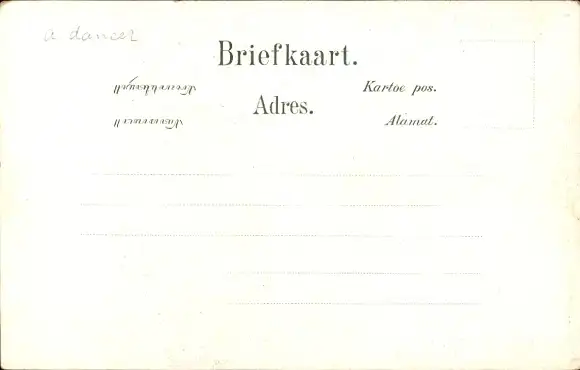 a dancer
Briefkaart.
Kartoe pos.
Adres.
Alamat.